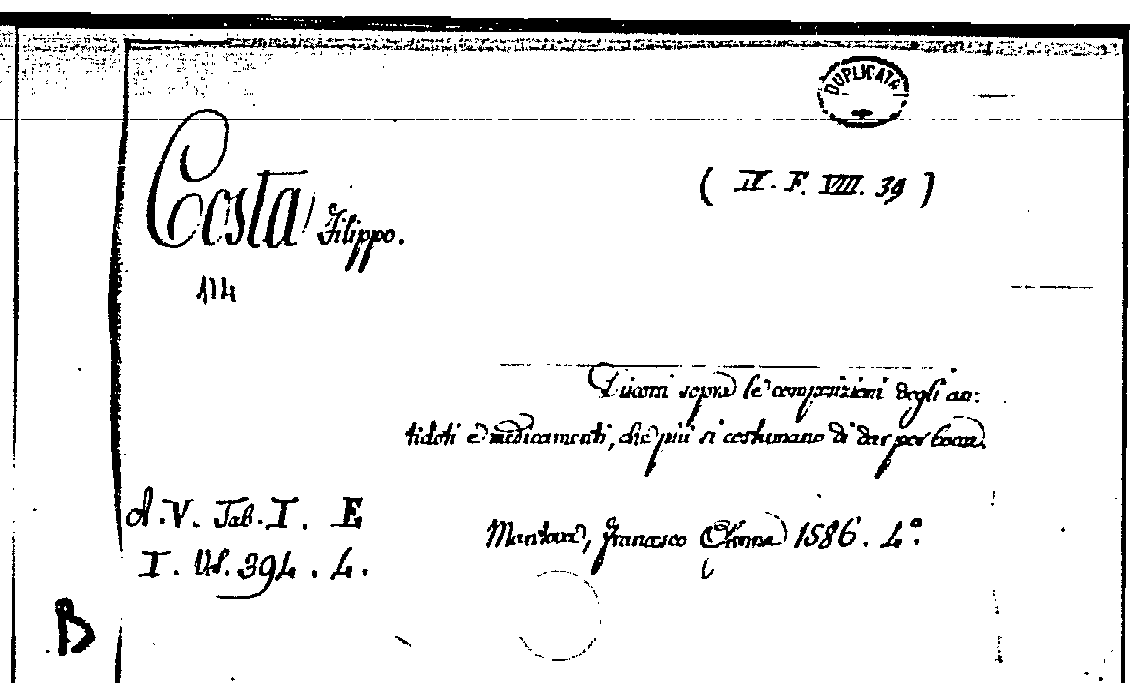 DUPLICATA
Costa, Filippo.
( II. F. VIII. 39 )
114
Discorsi sopra le composizioni degli an:
tidoti e medicamenti, che più si costumano di dar per bocca.
A. V. Tab. I. E
I. VI. 394. 4.
Mantova, Francesco Osanna 1586. 4.º
B